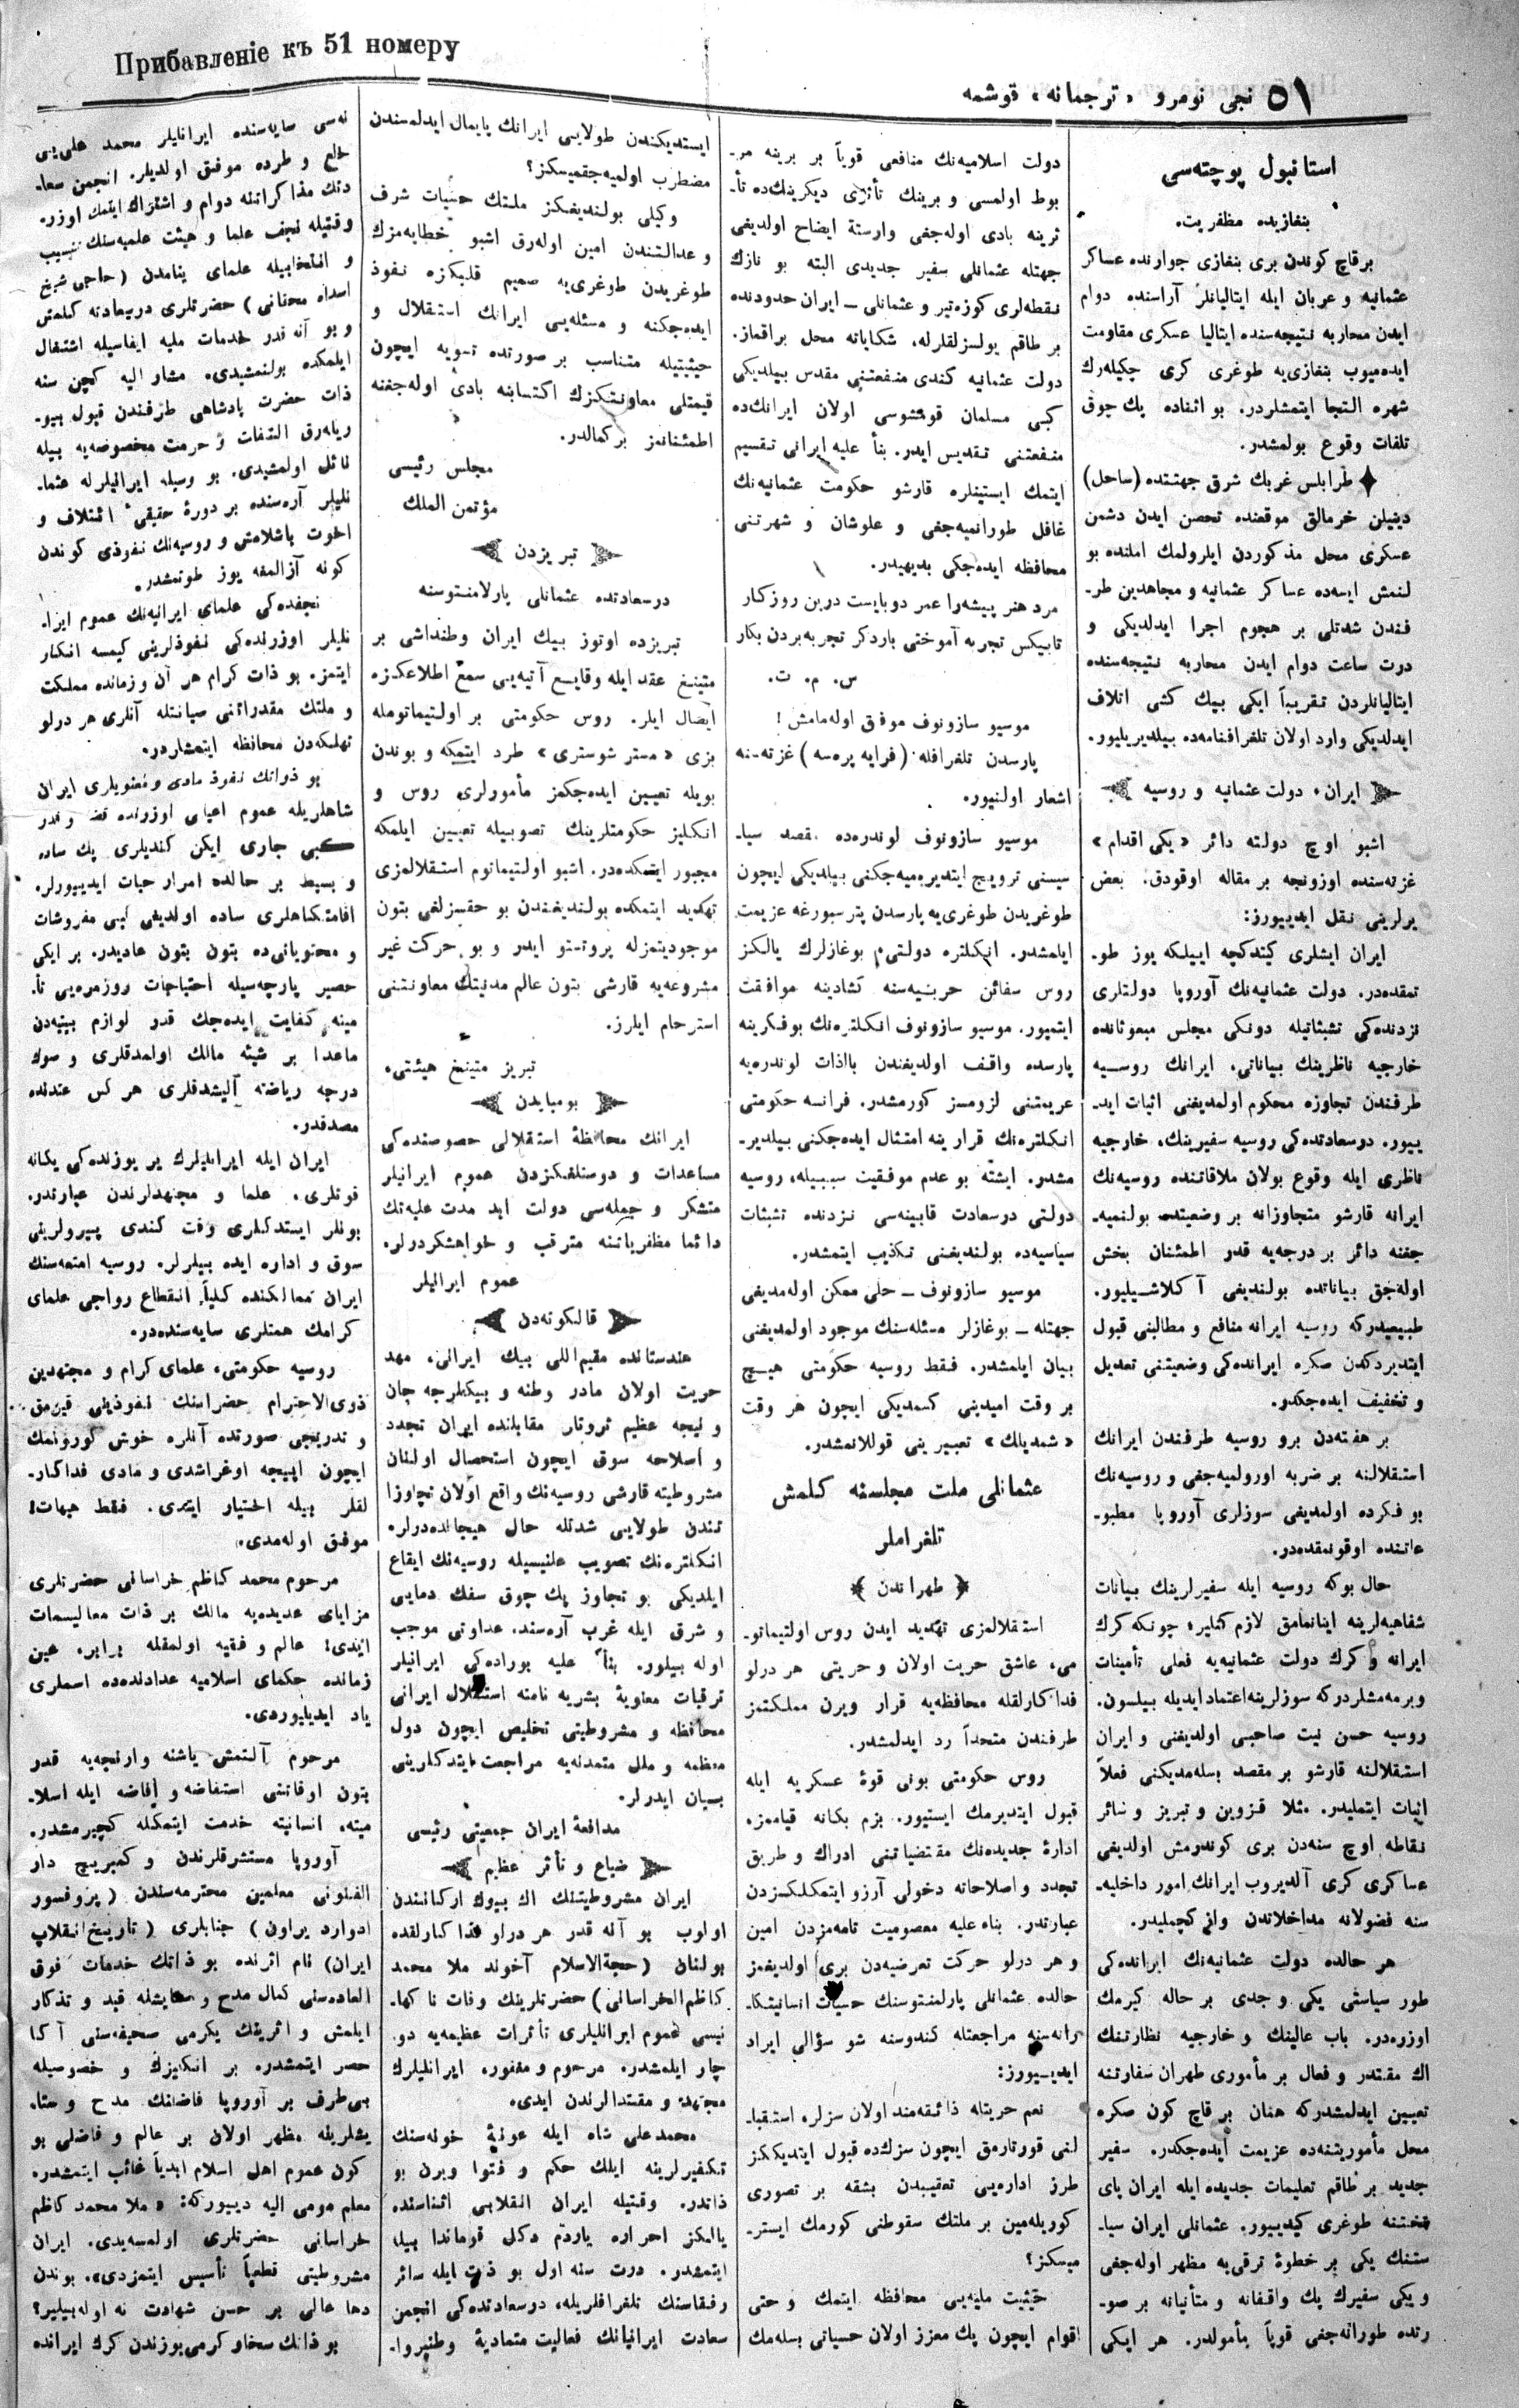 Прибавленіе къ 51 номеру
٥١ نجی نومرو «ترجمانه» قوشمه
استانبول پوچته‌سی
بنغازیده مظفریت.
برقاچ کوندن بری بنغازی جوارنده عساکر
عثمانیه و عربان ایله ایتالیانلر آراسنده دوام
ایدن محاربه نتیجه‌سنده ایتالیا عسکری مقاومت
ایده‌میوب بنغازی‌یه طوغری کری چکیله‌رك
شهره التجا ایتمشلردر. بو اثناده پك چوق
تلفات وقوع بولمشدر.
طرابلس غربك شرق جهتنده (ساحل)
دینیلن خرمالق موقعنده تحصن ایدن دشمن
عسکری محل مذکوردن ایلرولمك املنده بو
لنمش ایسه‌ده عساکر عثمانیه و مجاهدین طر-
فندن شدتلی بر هجوم اجرا ایدلدیکی و
درت ساعت دوام ایدن محاربه نتیجه‌سنده
ایتالیانلردن تقریباً ایکی بیك کشی اتلاف
ایدلدیکی وارد اولان تلغرافنامه‌ده بیلدیریلیور.
ایران، دولت عثمانیه و روسیه
اشبو اوچ دولته دائر «یکی اقدام»
غزته‌سنده اوزونجه بر مقاله اوقودق. بعض
یرلرینی نقل ایدییورز:
ایران ایشلری کیتدکچه اییلکه یوز طو-
تمقده‌در. دولت عثمانیه‌نك آوروپا دولتلری
نزدنده‌کی تشبثاتیله دونکی مجلس مبعوثانده
خارجیه ناظرینك بیاناتی، ایرانك روسـیه
طرفندن تجاوزه محکوم اولمدیغنی اثبات اید-
ییور. درسعادتده‌کی روسیه سفیرینك، خارجیه
ناظری ایله وقوع بولان ملاقاتنده روسیه‌نك
ایرانه قارشو متجاوزانه بر وضعیتده بولنمیه-
جغنه دائر بر درجه‌یه قدر اطمئنان بخش
اوله‌جق بیاناتده بولندیغی آکلاشـیلیور.
طبیعیدرکه روسیه ایرانه منافع و مطالبنی قبول
ایتدیردکدن صکره ایرانده‌کی وضعیتنی تعدیل
و تخفیف ایده‌جکدو.
بر هفته‌دن برو روسیه طرفندن ایرانك
استقلالنه بر ضربه اورولمیه‌جغی و روسیه‌نك
بو فکرده اولمدیغی سوزلری آوروپا مطبو-
عاتنده اوقونمقده‌در.
حال بوکه روسیه ایله سفیرلرینك بیانات
شفاهیه‌لرینه اینانمامق لازم کلیر، چونکه کرك
ایرانه و کرك دولت عثمانیه‌یه فعلی تأمینات
ویرمه‌مشلردرکه سوزلرینه اعتماد ایدیله بیلسون.
روسیه حسن نیت صاحبی اولدیغنی و ایران
استقلالنه قارشو بر مقصد بسله‌مدیکنی فعلاً
اثبات ایتملیدر. مثلا قـزوین و تبریز و سائر
نقاطه اوچ سنه‌دن بری کوندرمش اولدیغی
عساکری کری آلدیروب ایرانك امور داخلیه-
سنه فضولانه مداخلاتدن واز کچملیدر.
هر حالده دولت عثمانیه‌نك ایرانده‌کی
طور سیاستی یکی و جدی بر حاله کیرمك
اوزره‌در. باب عالینك و خارجیه نظارتـنك
اك مقتدر و فعال بر مأموری طهران سفارتنه
تعیین ایدلمشدرکه همان بر قاچ کون صکره
محل مأموریتنه‌ده عزیمت ایده‌جکدر. سفیر
جدید بر طاقم تعلیمات جدیده ایله ایران پای
تختنه طوغری کیدییور. عثمانلی ایران سیا-
ستنك یکی بر خطوۀ ترقی‌یه مظهر اوله‌جغی
و یکی سفیرك پك واقفانه و متأنیانه بر صو-
رتده طورانه‌جغی قویاً مأمولدر. هر ایکی
دولت اسلامیه‌نك منافعی قویاً بر برینه مر-
بوط اولمسی و برینك تأثری دیکرینك‌ده تأ-
ثرینه بادی اوله‌جغی وارستۀ ایضاح اولدیغی
جهتله عثمانلی سفیر جدیدی البته بو نازك
نقطه‌لری کوزه‌تیر و عثمانلی ــ ایران حدودنده
بر طاقم یولسزلقلرله، شکایاته محل براقماز.
دولت عثمانیه کندی منفعتنی مقدس بیلدیکی
کبی مسلمان قومشوسی اولان ایرانك‌ده
منفعتنی تقدیس ایدر. بنأ علیه ایرانی تقسیم
ایتمك ایستینلره قارشو حکومت عثمانیه‌نك
غافل طورانمیه‌جغی و علوشان و شهرتنی
محافظه ایده‌جکی بدیهیدر.
مرد هنر پیشه‌را عمر دو بایست درین روزکار
تابیکس تجربه آموختی باردکر تجربه‌بردن بکار
س. م. ت.
موسیو سازونوف موفق اوله‌مامش!
پارسدن تلغرافله (فرایه پره‌سه) غزته‌سنه
اشعار اولنیور.
موسیو سازونوف لوندره‌ده مقصد سیا-
سیسنی ترویج ایتدیره‌میه‌جکنی بیلدیکی ایچون
طوغریدن طوغری‌یه پارسدن پترسبورغه عزیمت
ایلمشدر. انکلتره دولتی‌م بوغازلرك یالکز
روس سفائن حربیه‌سنه کشادینه موافقت
ایتمیور. موسیو سازونوف انکلتره‌نك بوفکرینه
پارسده واقف اولدیغندن باالذات لوندره‌یه
عزیمتنی لزومسز کورمشدر. فرانسه حکومتی
انکلتره‌نك قرارینه امتثال ایده‌جکنی بیلدیر-
مشدر. ایشته بو عدم موفقیت سببیله، روسیه
دولتی درسعادت قابینه‌سی نزدنده تشبثات
سیاسیه‌ده بولندیغنی تکذیب ایتمشدر.
موسیو سازونوف ــ حلی ممکن اوله‌مدیغی
جهتله ــ بوغازلر مسئله‌سنك موجود اولمدیغنی
بیان ایلمشدر. فقط روسیه حکومتی هیـچ
بر وقت امیدینی کسمدیکی ایچون هر وقت
«شمدیلك» تعبیرینی قوللانمشدر.
عثمانلی ملت مجلسنه کلمش
تلغراملر
طهراندن
استقلالمزی تهدید ایدن روس اولتیماتو-
می، عاشق حریت اولان و حریتی هر درلو
فداکارلقله محافظه‌یه قرار ویرن مملکتمز
طرفندن متحداً رد ایدلمشدر.
روس حکومتی بونی قوۀ عسکریه ایله
قبول ایتدیرمك ایستیور. بزم یکانه قیاممز،
ادارۀ جدیده‌نك مقتضیاتنی ادراك و طریق
تجدد و اصلاحاته دخولی آرزو ایتمکلکمزدن
عبارتدر. بناء علیه معصومیت تامه‌مزدن امین
و هر درلو حرکت تعرضیه‌دن بری اولدیغمز
حالده عثمانلی پارلمنتوسنك حسیات انسانیتکا-
رانه‌سنه مراجعتله کندوسنه شو سؤالی ایراد
ایدیـیورز:
نعم حریتله ذائقه‌مند اولان سزلره استقبا-
لنی قورتارمق ایچون سزك‌ده قبول ایتدیککز
طرز اداره‌یی تعقیبدن بشقه بر تصوری
کوریله‌مین بر ملتك سقوطنی کورمك ایستر-
میسکز؟
حیثیت ملیه‌یی محافظه ایتمك و حتی
اقوام ایچون پك معزز اولان حسیاتی بسله‌مك
ایستدیکندن طولایی ایرانك پایمال ایدلمسندن
مضطرب اولمیه‌جقمیسکز؟
وکیلی بولندیغکز ملتك حسیات شرف
و عدالتندن امین اوله‌رق اشبو خطابه‌مزك
طوغریدن طوغری‌یه صمیم قلبکزه نفوذ
ایده‌جکنه و مسئله‌یی ایرانك استقلال و
حیثیتیله متناسب بر صورتده تسویه ایچون
قیمتلی معاونتکزك اکتسابنه بادی اوله‌جغنه
اطمئنانمز برکمالدر.
مجلس رئیسی
مؤتمن الملك
تبریزدن
درسعادتده عثمانلی پارلامنتوسنه
تبریزده اوتوز بیك ایران وطنداشی بر
متینغ عقد ایله وقایـع آتیه‌یی سمع اطلاعکزه
ایصال ایلر. روس حکومتی بر اولتیماتومله
بزی «مستر شوستری» طرد ایتمکه و بوندن
بویله تعیین ایده‌جکمز مأمورلری روس و
انکلیز حکومتلرینك تصوبیله تعیین ایلمکه
مجبور ایتمکده‌در. اشبو اولتیماتوم استقلالمزی
تهدید ایتمکده بولندیغندن بو حقسزلغی بتون
موجودیتمزله پروتستو ایدر و بو حرکت غیر
مشروعه‌یه قارشی بتون عالم مدنیتك معاونتنی
استرحام ایلرز.
تبریز متینغ هیئتی،
بومبایدن
ایرانك محافظۀ استقلالی خصوصنده‌کی
مساعدات و دوستلغکزدن عموم ایرانیلر
متشکر و جمله‌سی دولت ابد مدت علیه‌نك
دائما مظفریاتنه مترقب و خواهشکردرلر.
عموم ایرانیلر
قالکوته‌دن
هندستانده مقیم اللی بیك ایرانی، مهد
حریت اولان مادر وطنه و بیکلرجه جان
و نیجه عظیم ثروتلر مقابلنده ایران تجدد
و اصلاحه سوق ایچون استحصال اولنان
مشروطیته قارشی روسیه‌نك واقع اولان تجاوزا
تندن طولایی شدتله حال هیجانده‌درلر.
انکلتره‌نك تصویب علنیسیله روسیه‌نك ایقاع
ایلدیکی بو تجاوز پك چوق سفك دمایی
و شرق ایله غرب آره‌سنده عداوتی موجب
اوله بیلور. بنأً علیه بوراده‌کی ایرانیلر
ترقیات معنویۀ بشریه نامنه استقلال ایرانی
محافظه و مشروطیتی تخلیص ایچون دول
معظمه و ملل متمدنه‌یه مراجعت ایتدکلرینی
بیان ایدرلر.
مدافعۀ ایران جمعیتی رئیسی
ضیاع و تأثر عظیم
ایران مشروطیتنك اك بیوك ارکانندن
اولوب بو آنه قدر هر درلو فداکارلقده
بولنان (حجة‌الاسلام آخوند ملا محمد
کاظم الخراسانی) حضرتلرینك وفات ناکها-
نیسی عموم ایرانلیلری تأثرات عظیمه‌یه دو.
چار ایلمشدر. مرحوم و مغفور، ایرانلیلرك
مجتهد و مقتدالرندن ایدی.
محمد علی شاه ایله عونۀ خونه‌سنك
تکفیرلرینه ایلك حکم و فتوا ویرن بو
ذاتدر. وقتیله ایران انقلابی اثناسنده
یالکز احراره یاردم دکل قوماندا بیله
ایتمشدر. درت سنه اول بو ذت ایله سائر
رفقاسنك تلغرافلریله، درسعادتده‌کی انجمن
سعادت ایرانیانك فعالیت متمادیۀ وطنپروا-
نه‌سی سایه‌سنده ایرانلیلر محمد علی‌یی
خلع و طرده موفق اولدیلر. انجمن سعا-
دتك مذاکراتنه دوام و اشتراك ایتمك اوزر.
وقتیله نجف علما و هیئت علمیه‌سنك تنسیب
و انتخابیله علمای بنامدن (حاجی شیخ
اسدالله ممقانی) حضرتلری درسعادته کلمش
و بو آنه قدر خدمات ملیه ایفاسیله اشتغال
ایلمکده بولنمشیدی. مشار الیه کچن سنه
ذات حضرت پادشاهی طرفندن قبول بیو-
ریله‌رق التفات و حرمت مخصوصه‌یه بیله
نائل اولمشیدی. بو وسیله ایرانیلرله عثما-
نلیلر آره‌سنده بر دورۀ حقیقیٔ ائتلاف و
اخوت باشلامش و روسیه‌نك نفوذی کوندن
کونه آزالمغه یوز طوتمشدر.
نجفده‌کی علمای ایرانیه‌نك عموم ایرا-
نلیلر اوزرنده‌کی نفوذلرینی کیمسه انکار
ایتمز. بو ذات کرام هر آن و زمانده مملکت
و ملتك مقدراتنی صیانتله آنلری هر درلو
تهلکه‌دن محافظه ایتمشلردر.
بو ذواتك نفوذ مادی و معنویلری ایران
شاهلریله عموم اعیای اوزرنده قضا و قدر
کبی جاری ایکن کندیلری پك ساده
و بسیط بر حالده امرار حیات ایدییورلر.
اقامتکاهلری ساده اولدیغی کبی مفروشات
و محتویاتی‌ده بتون بتون عادیدر. بر ایکی
حصیر پارچه‌سیله احتیاجات روزمره‌یی تأ-
مینه کفایت ایده‌جك قدر لوازم بیتیه‌دن
ماعدا بر شیئه مالك اولمدقلری و صوك
درجه ریاضته آلیشدقلری هر کس عندنده
مصدقدر.
ایران ایله ایرانلیلرك یر یوزنده‌کی یکانه
قوتلری، علما و مجتهدلرندن عبارتدر.
بونلر ایستدکلری وقت کندی پیرولرینی
سوق و اداره ایده بیلرلر. روسیه امتعه‌سنك
ایران ممالکنده کلیاً انقطاع رواجی علمای
کرامك همتلری سایه‌سنده‌در.
روسیه حکومتی، علمای کرام و مجتهدین
ذوی‌الاحترام حضراتنك نفوذینی قیرمق
و تدریجی صورتده آنلره خوش کورونمك
ایچون اپیجه اوغراشدی و مادی فداکار-
لقلر بیله اختیار ایتدی. فقط هیهات!
موفق اوله‌مدی.
مرحوم محمد کاظم خراسانی حضرتلری
مزایای عدیده‌یه مالك بر ذات معالیسمات
ایدی! عالم و فقیه اولمقله برابر، عین
زمانده حکمای اسلامیه عدادنده‌ده اسملری
یاد ایدیلیوردی.
مرحوم آلتمش یاشنه وارنجه‌یه قدر
بتون اوقاتنی استفاضه و افاضه ایله اسلا-
میته، انسانیته خدمت ایتمکله کچیرمشدر.
آوروپا مستشرقلرندن و کمبریـچ دار
الفنونی معلمین محترمه‌سندن (پروفسور
ادوارد براون) جنابلری (تاریخ انقلاب
ایران) نام اثرنده بو ذاتك خدمات فوق
العاده‌سنی کمال مدح و ستایشله قید و تذکار
ایلمش و اثرینك یکرمی صحیفه‌سنی آکا
حصر ایتمشدر. بر انکلیزك و خصوصیله
بی‌طرف بر آوروپا فاضلنك مدح و ستا-
یشلرینه مظهر اولان بر عالم و فاضلی بو
کون عموم اهل اسلام ابدیاً غائب ایتمشدر.
معلم مومی الیه دییورکه: «ملا محمد کاظم
خراسانی حضرتلری اولمسه‌یدی، ایران
مشروطیتی قطعیاً تأسیس ایتمزدی». بوندن
دها عالی بر حسن شهادت نه اوله‌بیلیر؟
بو ذاتك سخاو کرمی یوزندن کرك ایرانده